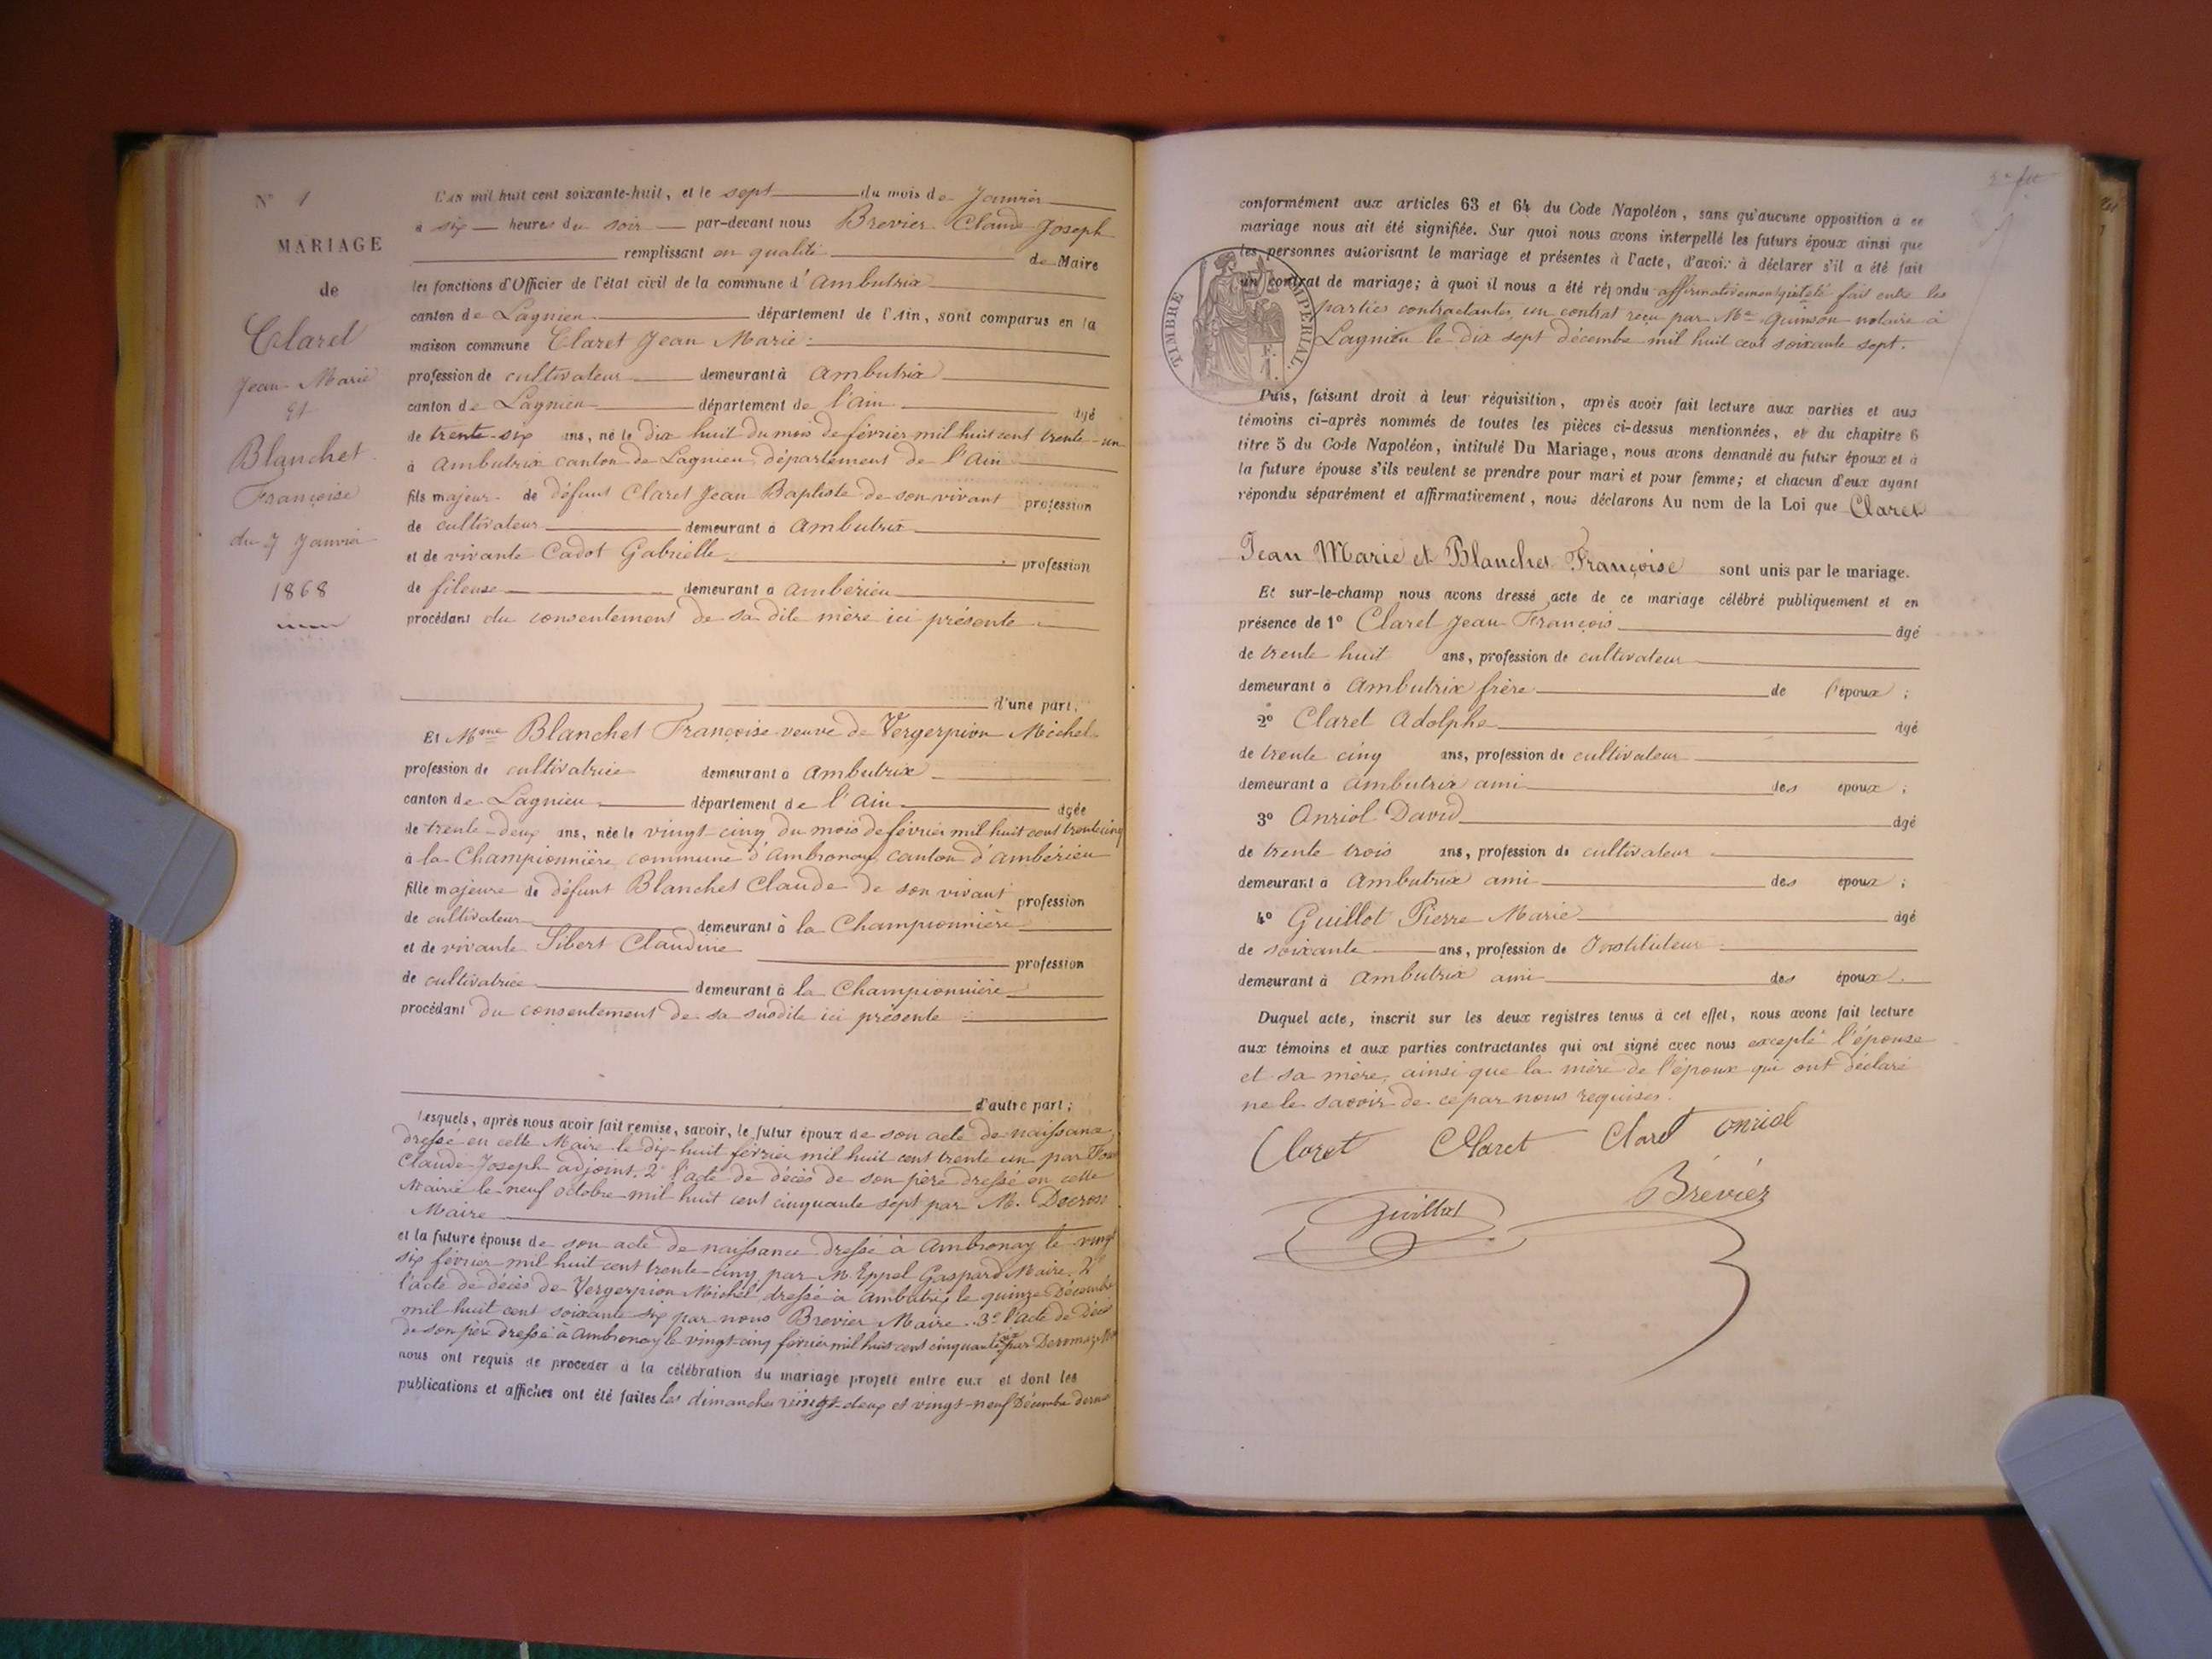 N° 1
MARIAGE
de
Claret
Jean-Marie
et
Blanchet
Françoise
du 7 Janvier
1868
L'AN mil huit cent soixante-huit, et le sept du mois de Janvier
à six heures du soir par-devant nous Brevier Claude Joseph
remplissant en qualité de Maire
les fonctions d'Officier de l'état civil de la commune d'Ambutrix
canton de Lagnieu département de l'Ain, sont comparus en la
maison commune Claret Jean Marie
profession de cultivateur demeurant à Ambutrix
canton de Lagnieu département de l'Ain âgé
de trente-six ans, né le dix huit du mois de février mil huit cent trente-un
à Ambutrix canton de Lagnieu département de l'Ain
fils majeur de défunt Claret Jean Baptiste de son vivant profession
de cultivateur demeurant à Ambutrix
et de vivante Cadot Gabrielle profession
de fileuse demeurant à Ambérieu
procédant du consentement de sa dite mère ici présente
d'une part,
Et Mme Blanchet Françoise veuve de Vergerpion Michel
profession de cultivatrice demeurant à Ambutrix
canton de Lagnieu département de l'Ain âgée
de trente-deux ans, née le vingt-cinq du mois de février mil huit cent trente cinq
à la Championnière commune d'Ambronay canton d'Ambérieu
fille majeure de défunt Blanchet Claude de son vivant profession
de cultivateur demeurant à la Championnière
et de vivante Sibert Claudine profession
de cultivatrice demeurant à la Championnière
procédant du consentement de sa susdite ici présente
d'autre part;
Lesquels, après nous avoir fait remise, savoir, le futur époux de son acte de naissance
dressé en cette Mairie le dix-huit février mil huit cent trente un par
Claude Joseph adjoint, 2° l'acte de décès de son père dressé en cette
Mairie le neuf octobre mil huit cent cinquante sept par M. Decroso
Maire
et la future épouse de son acte de naissance dressé à Ambronay le vingt
six février mil huit cent trente-cinq par M. Eppel Gaspard Maire. 2°
l'acte de décès de Vergerpion Michel dressé à Ambutrix le quinze Décembre
mil huit cent soixante six par nous Brevier Maire. 3° l'acte de Décès
de son père dressé à Ambronay le vingt-cinq février mil huit cent cinquante par
nous ont requis de procéder à la célébration du mariage projeté entre eux et dont les
publications et affiches ont été faites les dimanches vingt-deux et vingt-neuf Décembre dernier
conformément aux articles 63 et 64 du Code Napoléon, sans qu'aucune opposition à ce
mariage nous ait été signifiée. Sur quoi nous avons interpellé les futurs époux ainsi que
les personnes autorisant le mariage et présentes à l'acte, d'avoir à déclarer s'il a été fait
un contrat de mariage; à quoi il nous a été répondu affirmativement fait entre les
parties contractantes, un contrat reçu par Me Quinson notaire à
Lagnieu le dix sept décembre mil huit cent soixante sept.
TIMBRE IMPÉRIAL
Puis, faisant droit à leur réquisition, après avoir fait lecture aux parties et aux
témoins ci-après nommés de toutes les pièces ci-dessus mentionnées, et du chapitre 6
titre 5 du Code Napoléon, intitulé Du Mariage, nous avons demandé au futur époux et à
la future épouse s'ils veulent se prendre pour mari et pour femme; et chacun d'eux ayant
répondu séparément et affirmativement, nous déclarons Au nom de la Loi que Claret
Jean Marie et Blanchet Françoise sont unis par le mariage.
Et sur-le-champ nous avons dressé acte de ce mariage célébré publiquement et en
présence de 1° Claret Jean François âgé
de trente huit ans, profession de cultivateur
demeurant à Ambutrix frère de l'époux;
2° Claret Adolphe âgé
de trente cinq ans, profession de cultivateur
demeurant à Ambutrix ami des époux;
3° Onriol David âgé
de trente-trois ans, profession de cultivateur
demeurant à Ambutrix ami des époux;
4° Guillot Pierre Marie âgé
de soixante ans, profession de Instituteur
demeurant à Ambutrix ami des époux.
Duquel acte, inscrit sur les deux registres tenus à cet effet, nous avons fait lecture
aux témoins et aux parties contractantes qui ont signé avec nous excepté l'épouse
et sa mère, ainsi que la mère de l'époux qui ont déclaré
ne le savoir de ce par nous requises.
Claret Claret Claret Onriol
Guillot Brévier